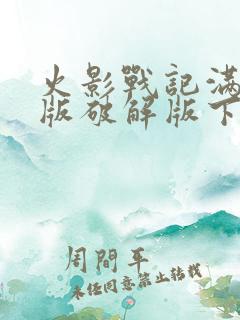 火影戰記滿
版破解版下
周間平
未经同意禁止转载